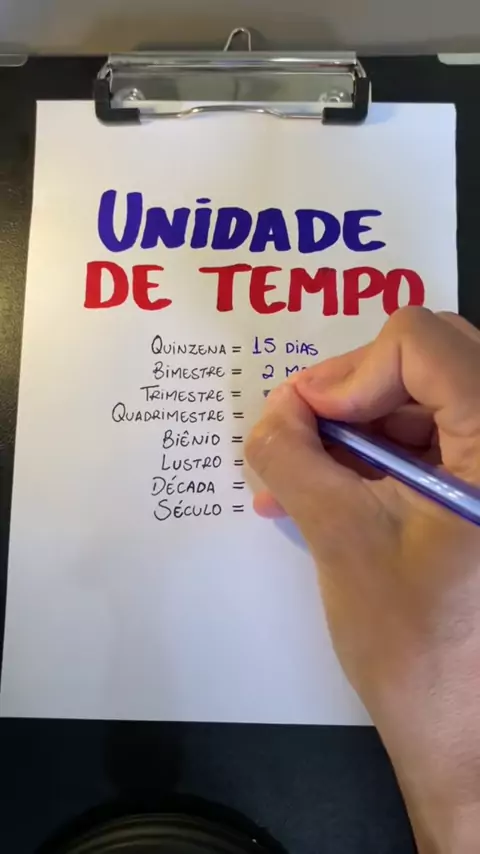 UNIDADE
DE TEMPO
QUINZENA = 15 DIAS
BIMESTRE = 2
TRIMESTRE =
QUADRIMESTRE =
BIÊNIO =
LUSTRO =
DÉCADA =
SÉCULO =